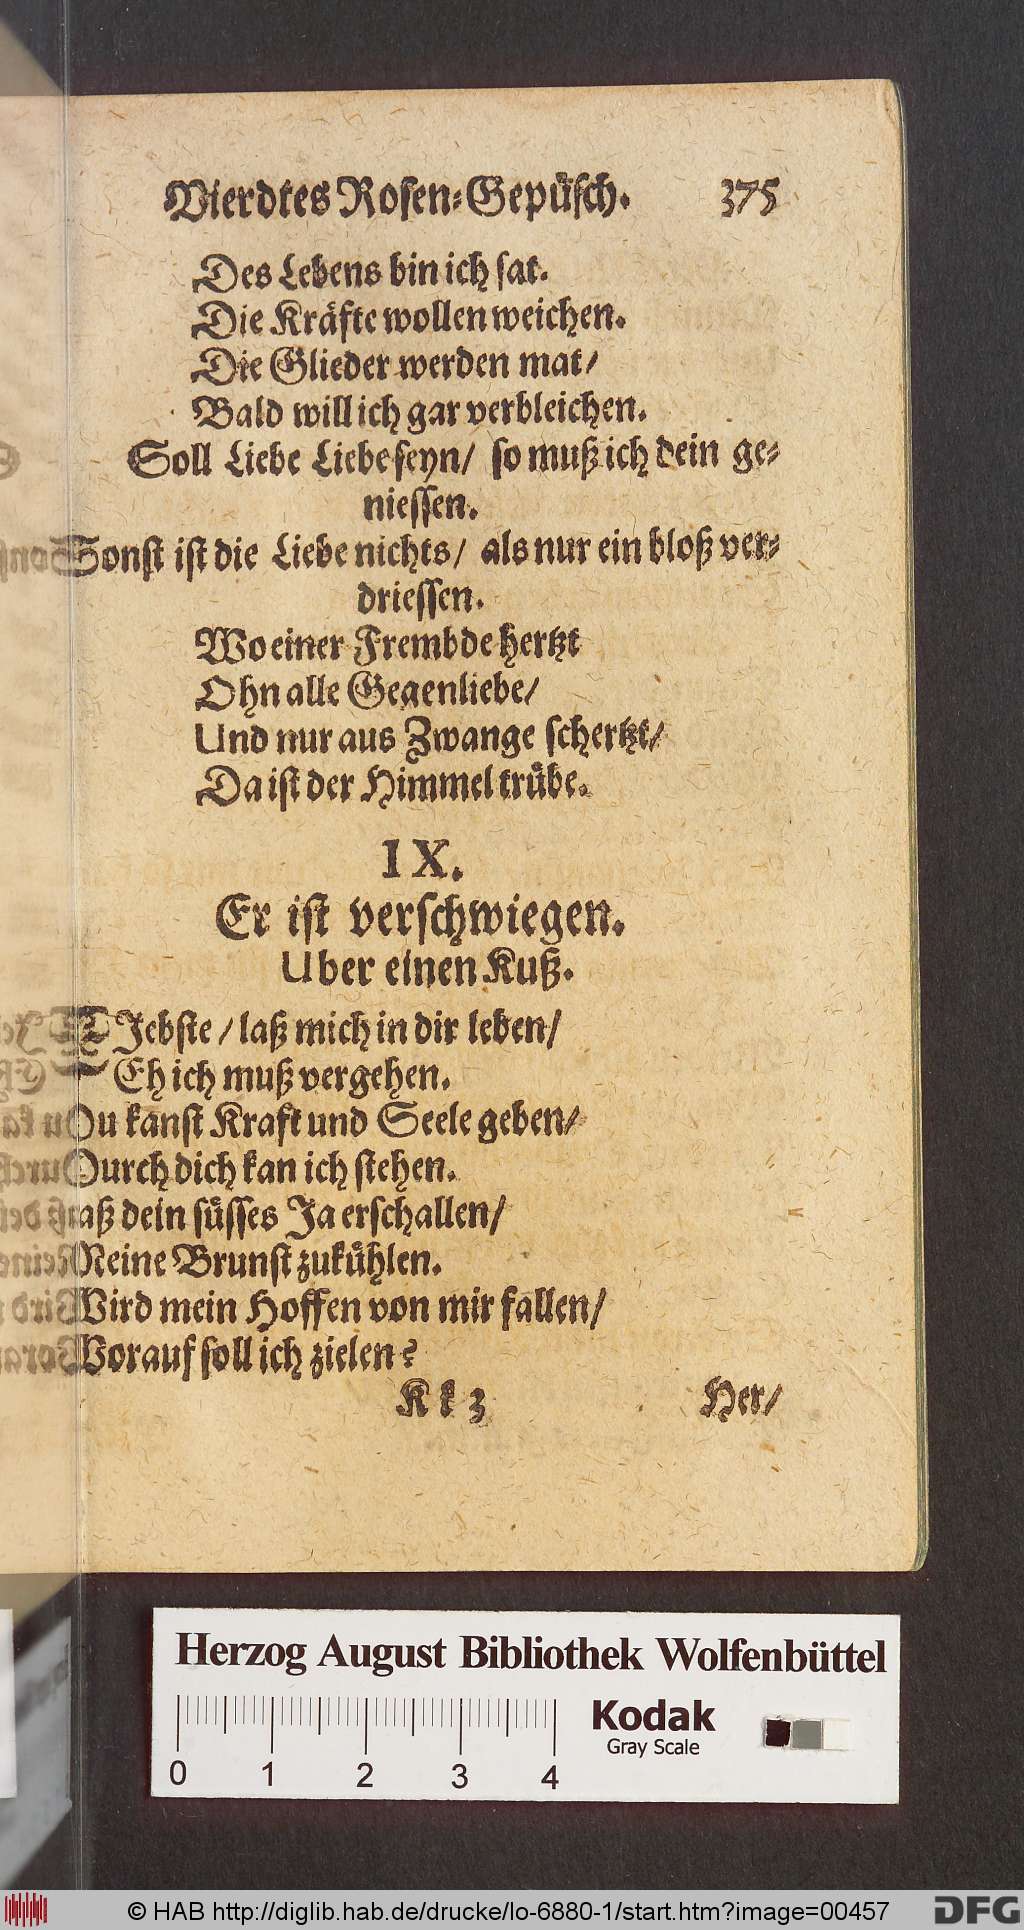 Vierdtes Rosen-Gepüsch. 375
Des Lebens bin ich sat.
Die Kräfte wollen weichen.
Die Glieder werden mat/
Bald will ich gar verbleichen.
Soll Liebe Liebe seyn/ so muß ich dein ge-
niessen.
Sonst ist die Liebe nichts/ als nur ein bloß ver-
driessen.
Wo einer Frembde hertzt
Ohn alle Gegenliebe/
Und nur aus Zwange schertzt/
Da ist der Himmel trübe.
IX.
Er ist verschwiegen.
Uber einen Kuß.
LJebste/ laß mich in dir leben/
Eh ich muß vergehen.
Du kanst Kraft und Seele geben/
Durch dich kan ich stehen.
Laß dein süsses Ja erschallen/
Meine Brunst zu kühlen.
Wird mein Hoffen von mir fallen/
Worauf soll ich zielen?
Kk 3 Her/
Herzog August Bibliothek Wolfenbüttel
Kodak
Gray Scale
0 1 2 3 4
© HAB http://diglib.hab.de/drucke/lo-6880-1/start.htm?image=00457
DFG